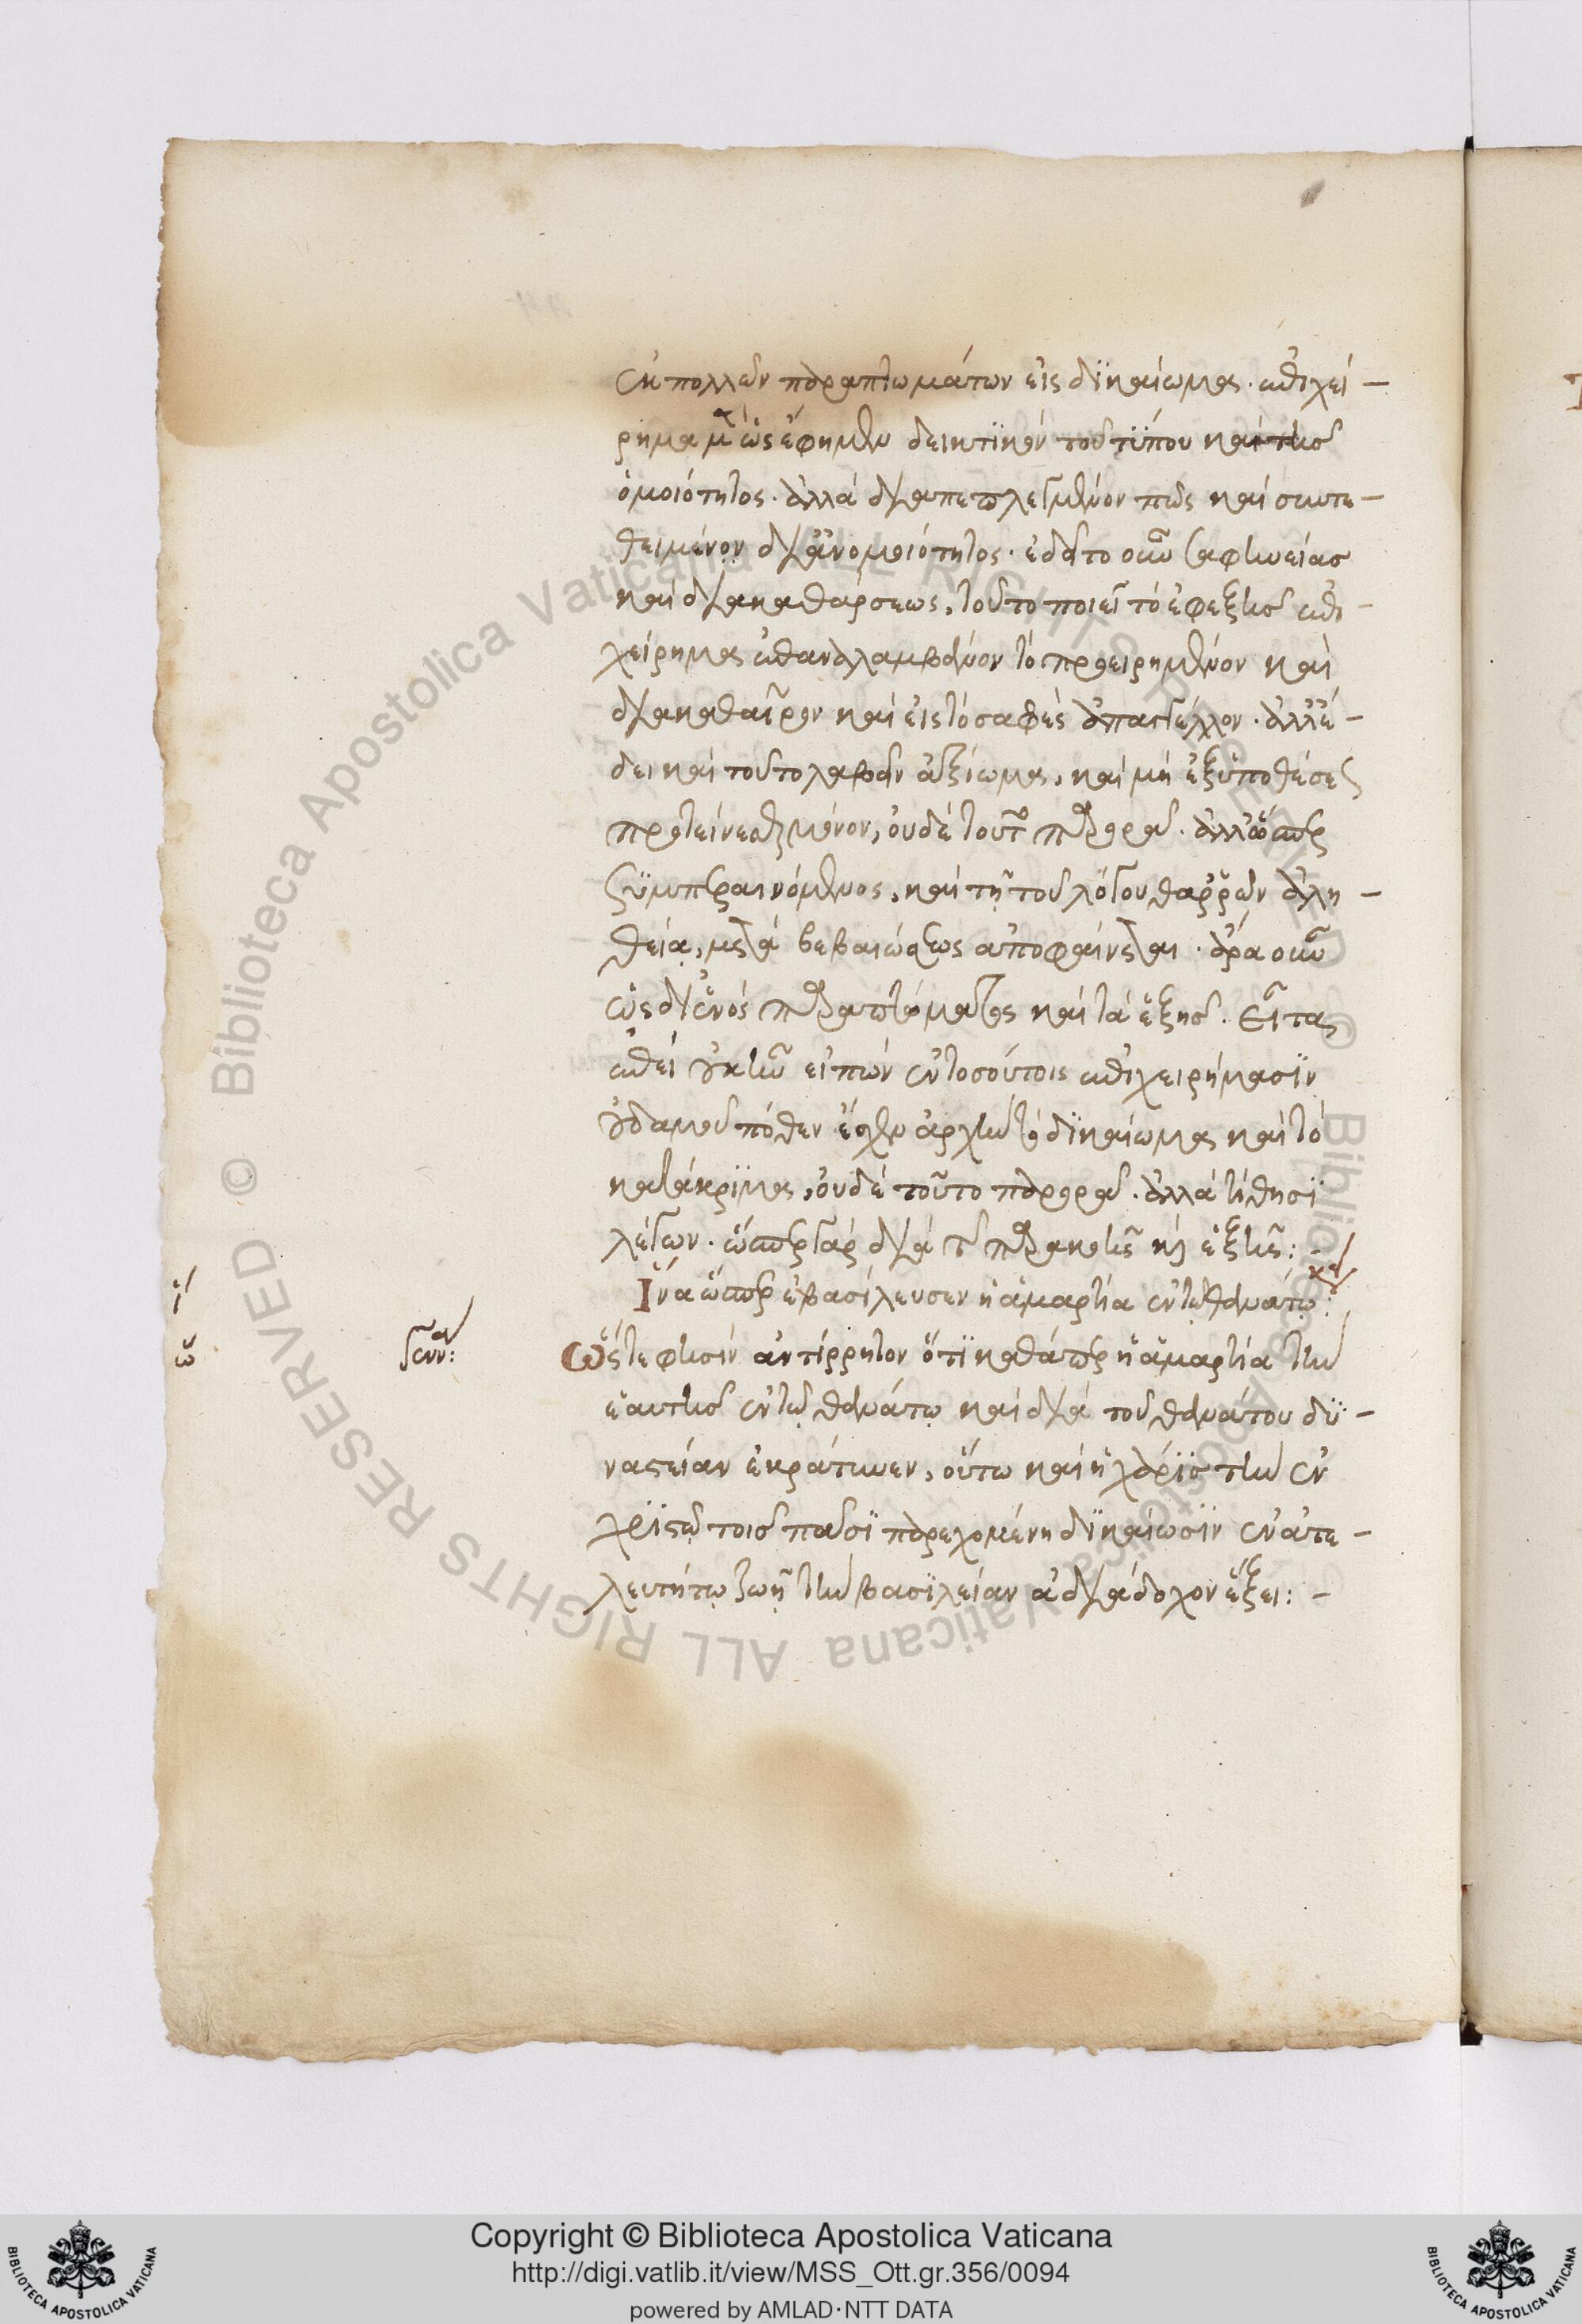 ἐκ πολλῶν παραπτωμάτων εἰς δϊκαίωμα. ἐπιχεί-
ρημα μὲν ὡς ἔφημεν δεικτϊκὸν τοῦ τΰπου καὶ τῆσ
ὁμοιότητος. ἀλλὰ διαπεπλεγμένον πῶς καὶ συντε-
θειμένον διανομοιότητος. ἐδεῖτο οὖν σαφηνείασ
καὶ διακαθάρσεως, τοῦτο ποιεῖ τὸ ἐφεξῆσ ἐπι-
χείρημα ἐπαναλαμβάνον τὸ προειρημένον καὶ
διακαθαῖρον καὶ εἰς τὸ σαφὲς ἀποστέλλον. ἀλλ' ἔ-
δει καὶ τοῦτο λαβεῖν ἀξίωμα, καὶ μὴ ἐξ ὑποθέσεως
προτείνεσθαι μόνον, οὐδὲ τοῦτο παρορᾶ. ἀλλ' ὥσπερ
ξϋμπεραινόμενος, καὶ τῆ τοῦ λόγου θαρρῶν ἀλη-
θεία, μετὰ βεβαιώσεως ἀποφαίνεται. ἄρα οὖν
ὡς δι' ἑνὸς παραπτώματος καὶ τὰ ἑξῆσ. Εἶτα
ἐπεὶ εἰπὼν ἐν τοσούτοις ἐπιχειρήμασϊν
οὐδαμοῦ πόθεν ἔσχεν ἀρχὴν τὸ δϊκαίωμα καὶ τὸ
κατάκρϊμα, οὐδὲ τοῦτο παρορᾶ. ἀλλὰ τίθησϊ
λέγων. ὥσπερ γὰρ διὰ τῆς παρακοῆς καὶ ἑξῆς:
Ἵνα ὥσπερ ἐβασίλευσεν ἡ ἁμαρτία ἐν τῷ θανάτω:
κε
ϊ
ὥ
σενν:
Ὥστε φησὶν ἀντίρρητον ὅτϊ καθάπερ ἡ ἁμαρτία τὴν
ἑαυτῆσ ἐν τῷ θανάτῳ καὶ διὰ τοῦ θανάτου δϋ-
ναστείαν ἐκράτυνεν, οὕτω καὶ ἡ χάρϊσ τὴν ἐν
χϊστῷ τοισ πᾶσϊ παρεχομένη δϊκαίωσϊν ἐν ἀτε-
λευτήτῳ ζωῆ τὴν βασϊλείαν ἀδιάδοχον ἕξει: -
Copyright © Biblioteca Apostolica Vaticana
http://digi.vatlib.it/view/MSS_Ott.gr.356/0094
powered by AMLAD·NTT DATA